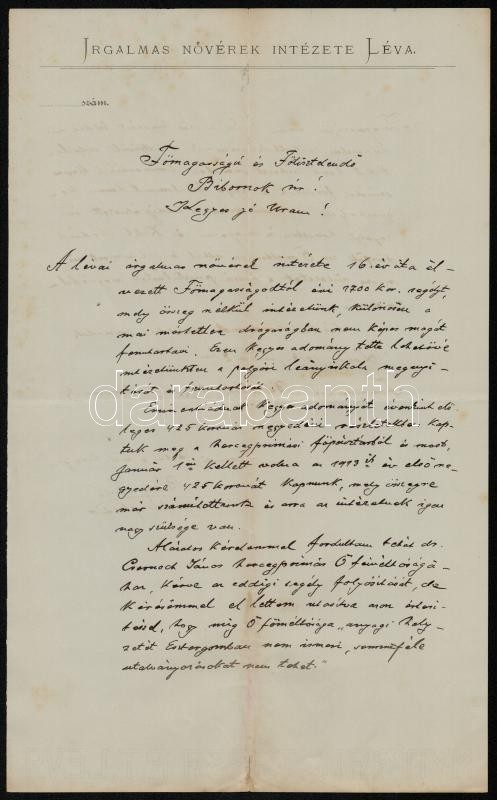 IRGALMAS NŐVÉREK INTÉZETE LÉVA.
szám.
Főmagasságú és Főtisztelendő
Bíbornok úr!
Kegyes jó Uram!
A lévai irgalmas nővérek intézete 16. év óta él-
vezett Főmagasságodtól évi 1700 kor. segélyt,
mely összeg nélkül intézetünk, különösen a
mai mértéktlen drágaságban nem képes magát
fenntartani. Ezen kegyes adomány tette lehetővé
intézetünkben a polgári leányiskola megnyi-
tását és fenntartását.
Eminentiádnak kegyes adományát évenként elő-
leges 425 koronás negyedévi részletekben kap-
tuk meg a hercegprímási főpénztárból és most,
január 1én kellett volna az 1913ik év első ne-
gyedére 425 koronát kapnunk, mely összegre
már számítottunk és arra az intézetnek igen
nagy szüksége van.
Alázatos kérelemmel fordultam tehát dr.
Csernoch János hercegprímás Ő főméltóságá-
hoz, kérve az eddigi segély folyósítását, de
kérésemmel el lettem utasítva azon értesí-
téssel, hogy míg Ő főméltósága "anyagi hely-
zetét Esztergomban nem ismeri, semmiféle
utalványozásokat nem tehet."
darabanth